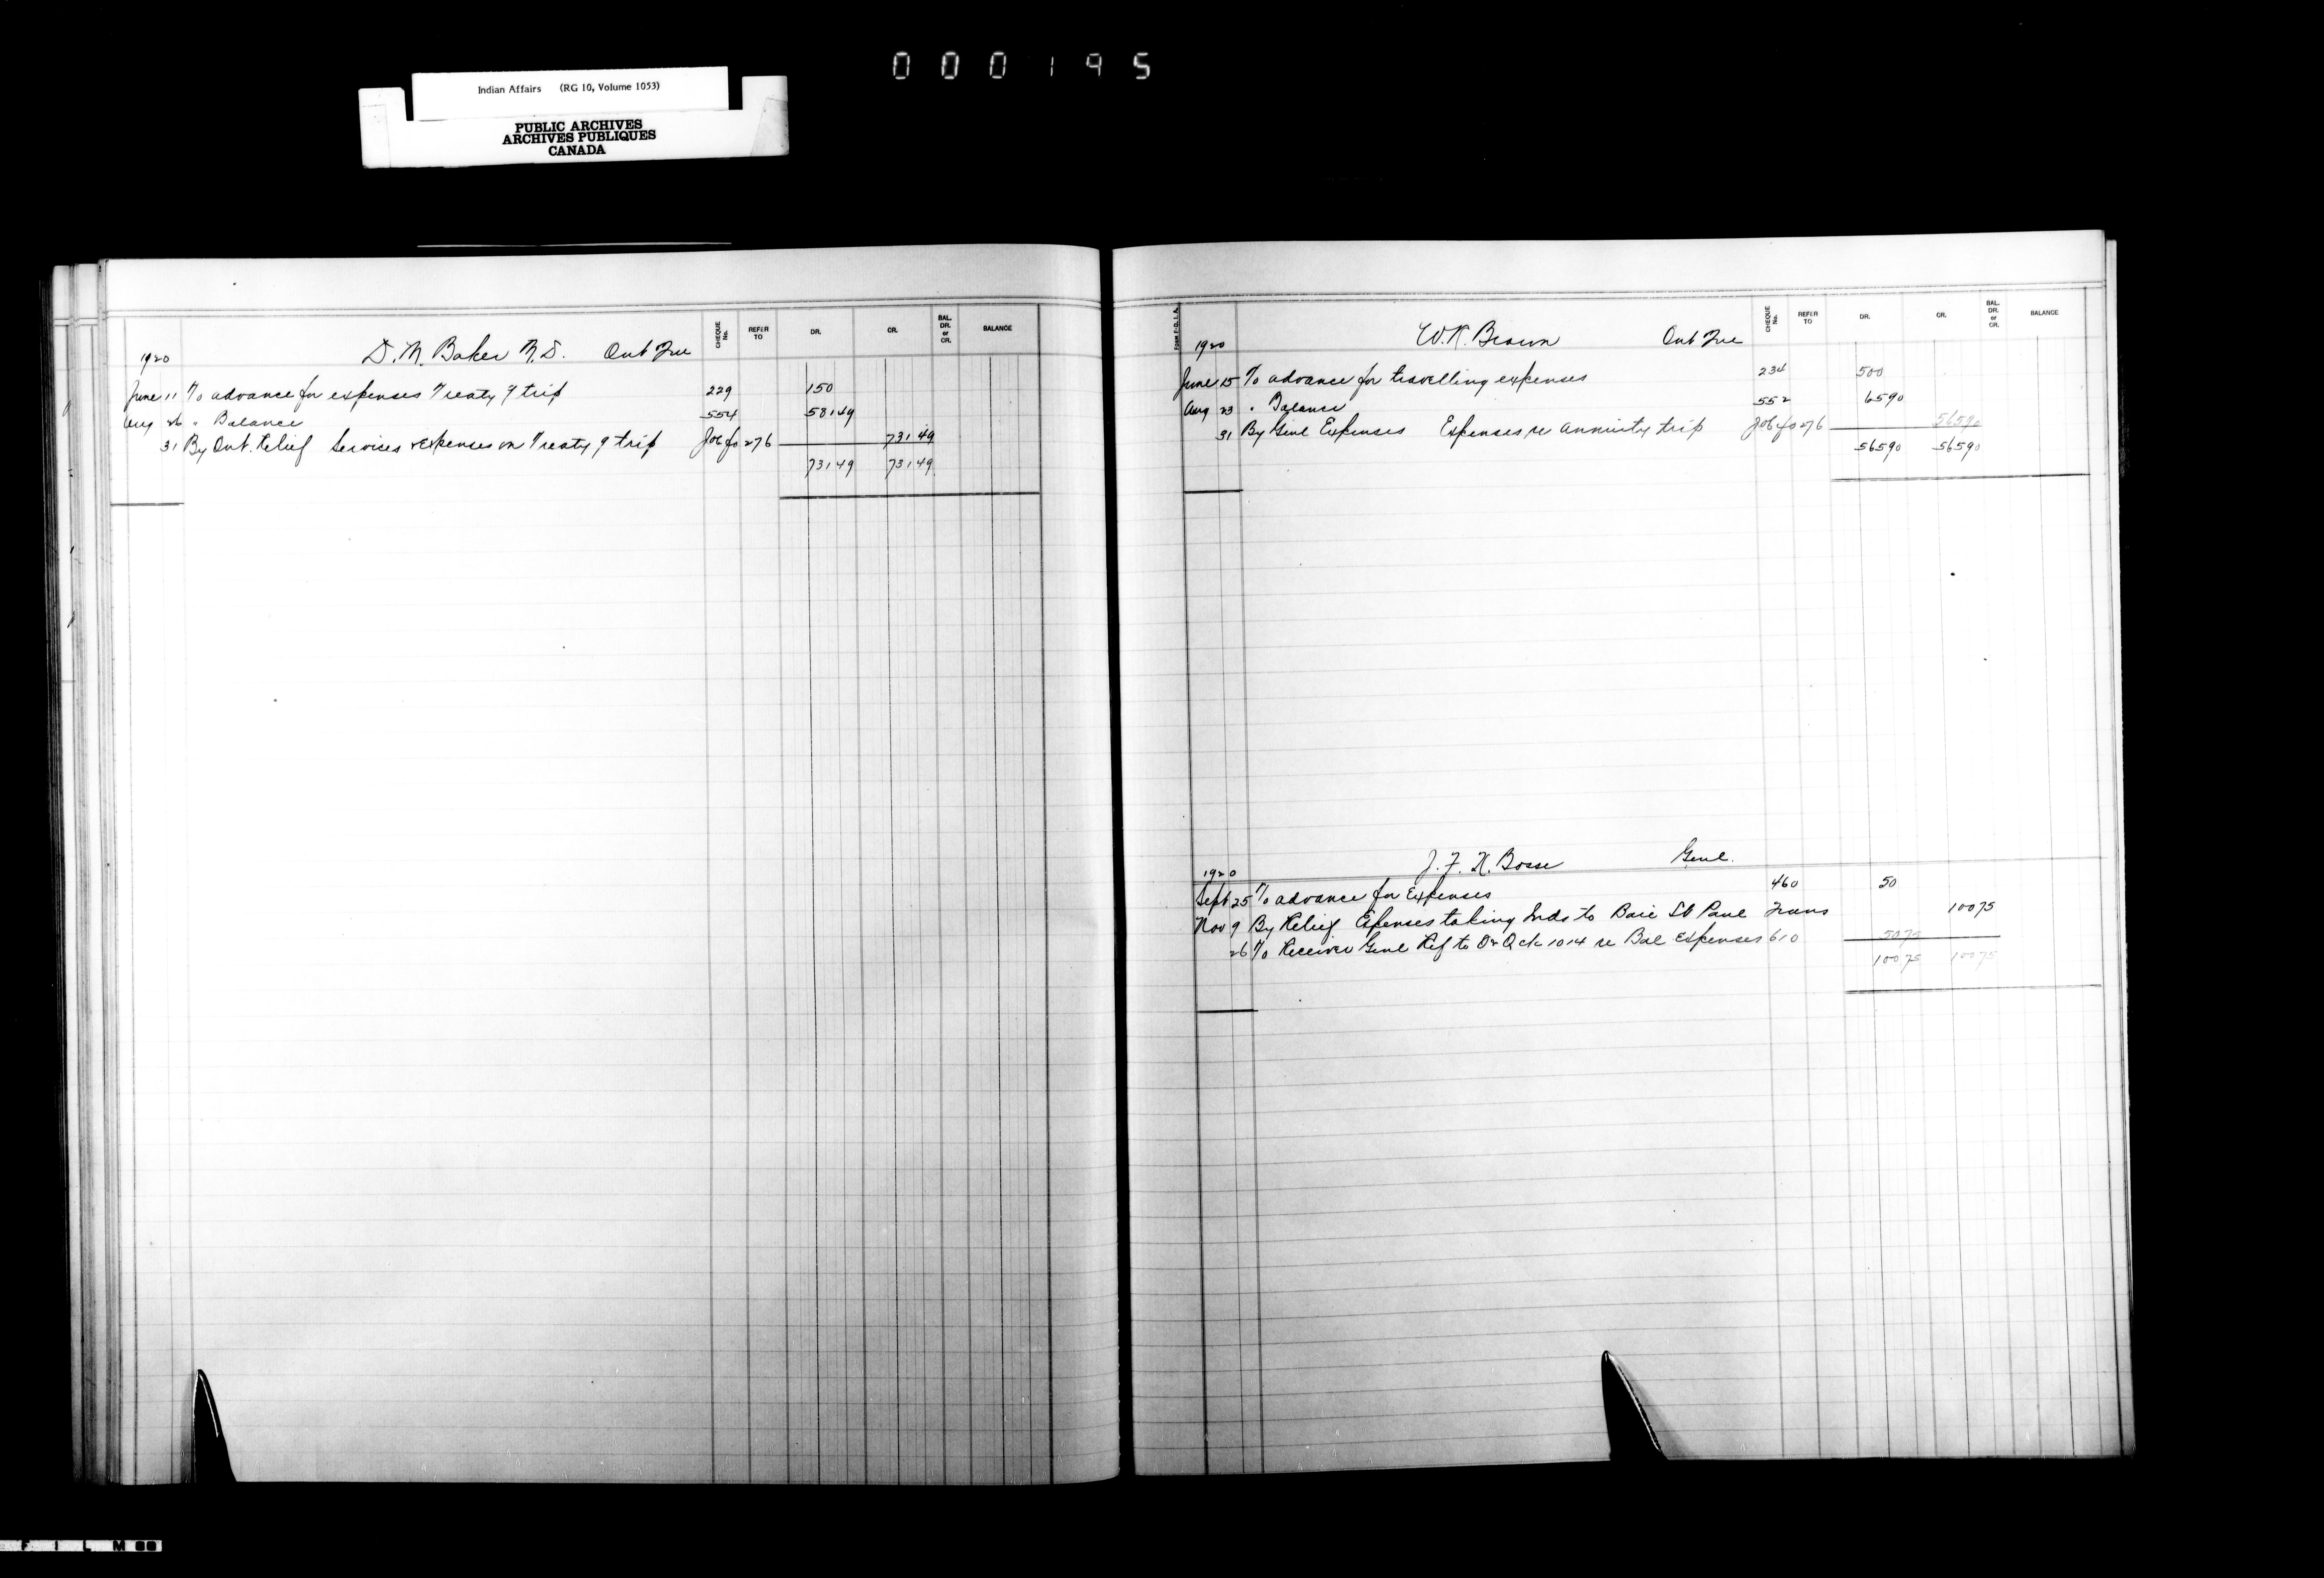 000195
Indian Affairs (RG 10, Volume 1053)
PUBLIC ARCHIVES
ARCHIVES PUBLIQUES
CANADA
CHEQUE No. REFER TO DR. CR. BAL. DR. or CR. BALANCE
1920 D. M. Baker M.D. Ont
June 11 To advance for expenses Treaty 9 trip 229 150
Aug 26 " Balance 554 581 49
31 By Ont. Relief Services & expenses on Treaty 9 trip fo 276 731 49
731 49 731 49
CHEQUE No. REFER TO DR. CR. BAL. DR. or CR. BALANCE
1920 Brown Ont
June 15 To advance for travelling expenses 234 500
Aug 23 " Balance 552 65 90
31 By Genl Expenses Expenses re annuity trip fo 276 565 90
565 90 565 90
1920 J. F. X. Bosse Genl.
Sept 25 To advance for Expenses 460 50
Nov 9 By Relief Expenses taking Inds to Baie St Paul Trans 100 75
26 To Receiver Genl Ref to 1014 re Bal Expenses 610 50 75
100 75 100 75
FILM